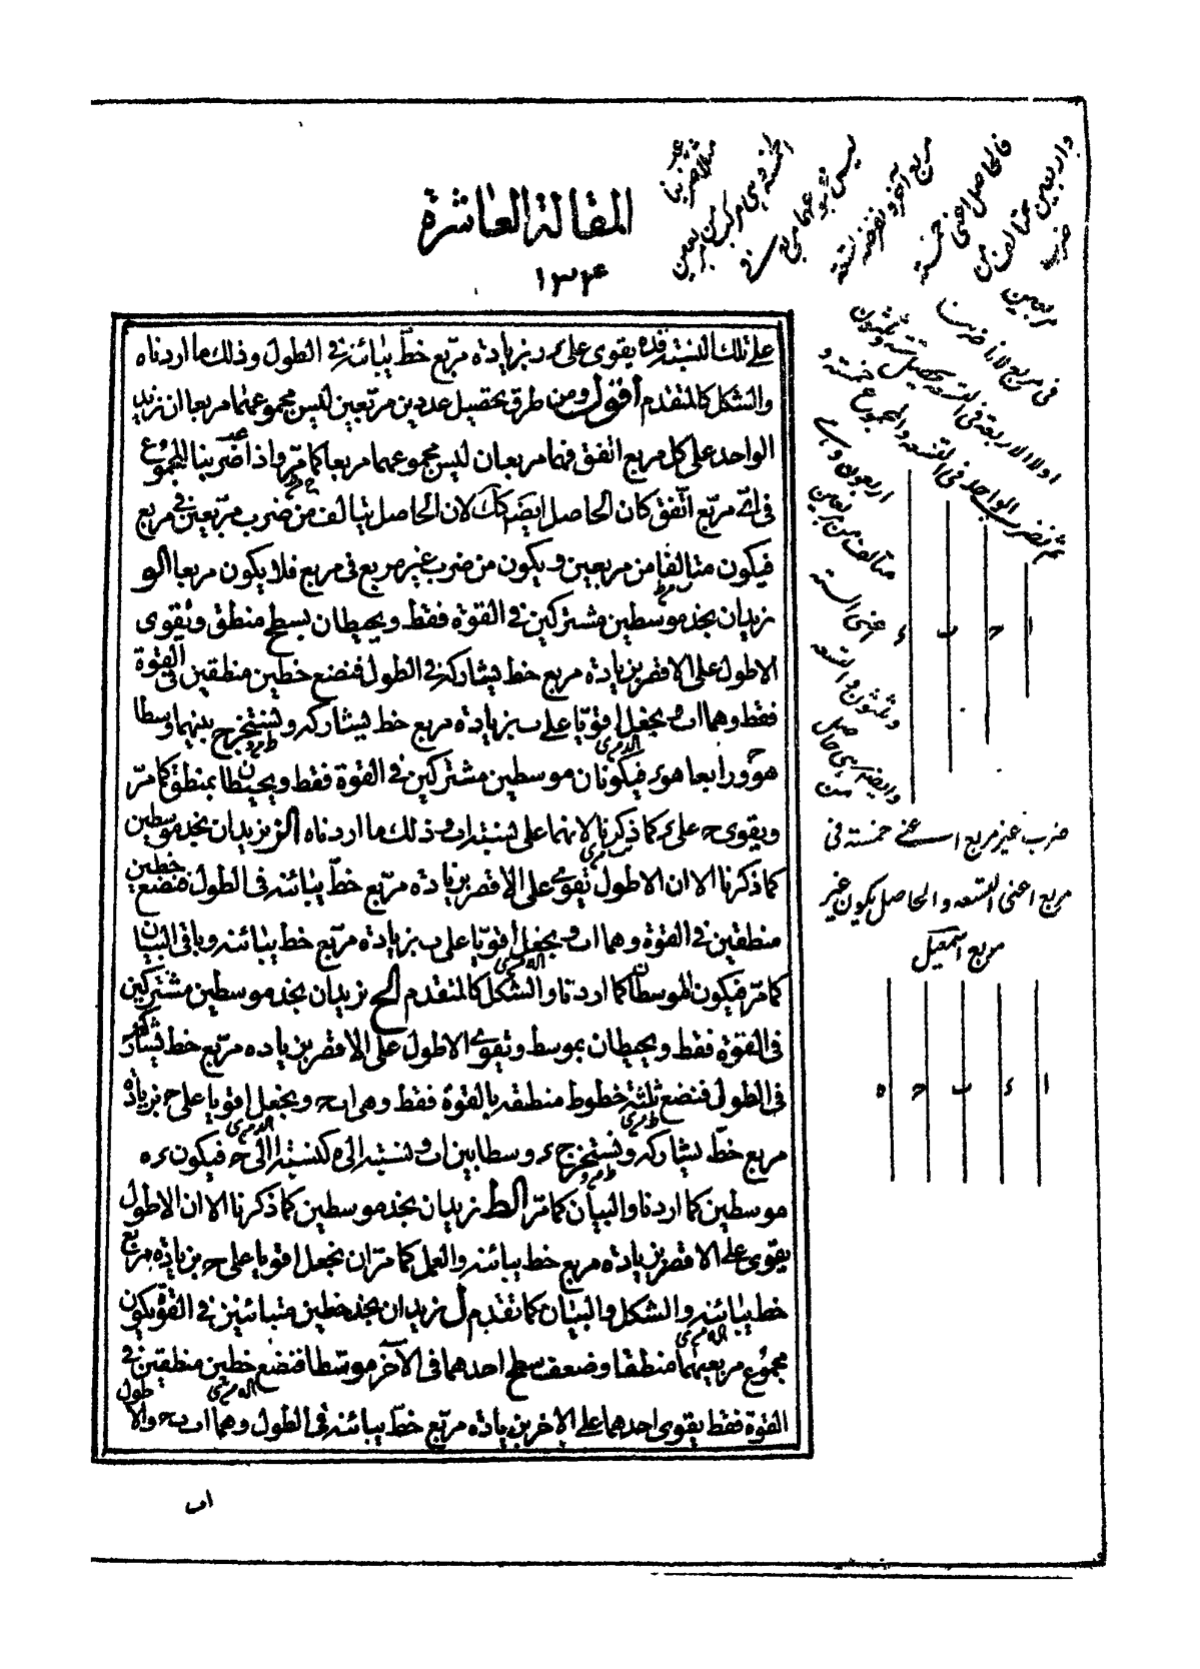 المقالة العاشرة
١٣٤
على تلك النسبة فده يقوى على ء د بزيادة مربّع خطّ يباينه فى الطول وذلك ما اردناه
والشكل كالمتقدم اقول ومن طرق تحصيل عددين مربّعين ليس مجموعهما مربعا ان نزيد
الواحد على كل مربع اتفق فهما مربعان ليس مجموعهما مربعا كما مرّ واذا ضربنا المجموع
فى اىّ مربّع اتّفق كان الحاصل ايضا كك لان الحاصل يتالف من ضرب مربّعين فى مربع
فيكون متالفا من مربعين ويكون من ضرب غير مربع فى مربع فلا يكون مربعا الو
نزيدان نجد موسطين مشتركين فى القوة فقط ويحيطان بسطح منطق ويقوى
الاطول على الاقصر بزيادة مربع خط يشاركه فى الطول فنضع خطين منطقين فى القوة
فقط وهما ا ب ونجعل ا قويا على ب بزيادة مربع خط يشاركه ونستخرج بينهما وسطا
هو ح ورابعا هو ء فيكونان موسطين مشتركين فى القوة فقط ويحيطان بمنطق كما مرّ
ويقوى ح على ء كما ذكرنا لانهما على نسبة ا ب وذلك ما اردناه الز نريد ان نجد موسطين
كما ذكرنا الا ان الاطول يقوى على الاقصر بزيادة مربّع خطّ يباينه فى الطول فنضع خطين
منطقين فى القوة وهما ا ب ونجعل ا قويا على ب بزيادة مربّع خط يباينه وباقى البيان
كما مرّ فيكون الموسطان كما اردنا والشكل كالمتقدم الح نريد ان نجد موسطين مشتركين
فى القوة فقط ويحيطان بموسط ويقوى الاطول على الاقصر بزيادة مربّع خط يشاركه
فى الطول فنضع ثلثة خطوط منطقة بالقوة فقط وهى ا ب ح ونجعل ا قويا على ح بزيادة
مربع خطّ يشاركه ونستخرج ء وسطا بين ا ب ونسبته الى ه كنسبة ا الى ح فيكون ء ه
موسطين كما اردنا والبيان كما مرّ الط نريد ان نجد موسطين كما ذكرنا الا ان الاطول
يقوى على الاقصر بزيادة مربع خط يباينه والعمل كما مرّ ان نجعل ا قويا على ح بزيادة مربع
خط يباينه والشكل والبيان كما تقدم ل نريد ان نجد خطين متباينين فى القوة يكون
مجموع مربعيهما منطقا وضعف سطح احدهما فى الآخر موسّطا فنضع خطين منطقين فى
القوة فقط يقوى احدهما على الاخر بزيادة مربّع خطّ يباينه فى الطول وهما ا ب ح والاطول
ا ب
فالحاصل اعنى خمسة
واربعين متالف من
ضرب
مربعين
فى مربع
اولا الاربعة فى التسعة يحصل ستة وثلثون
ثم نضرب الواحد فى التسعة والمجموع خمسة و
اربعون وهى
متالف من مربعين
اعنى الستة
وثلثون والتسعة
وايضا هى حاصل
من
ضرب غير مربع اعنى خمسة فى
مربع اعنى التسعة والحاصل يكون غير
مربع اسمعيل
ا ح ب ء
ا ء ب ح ه